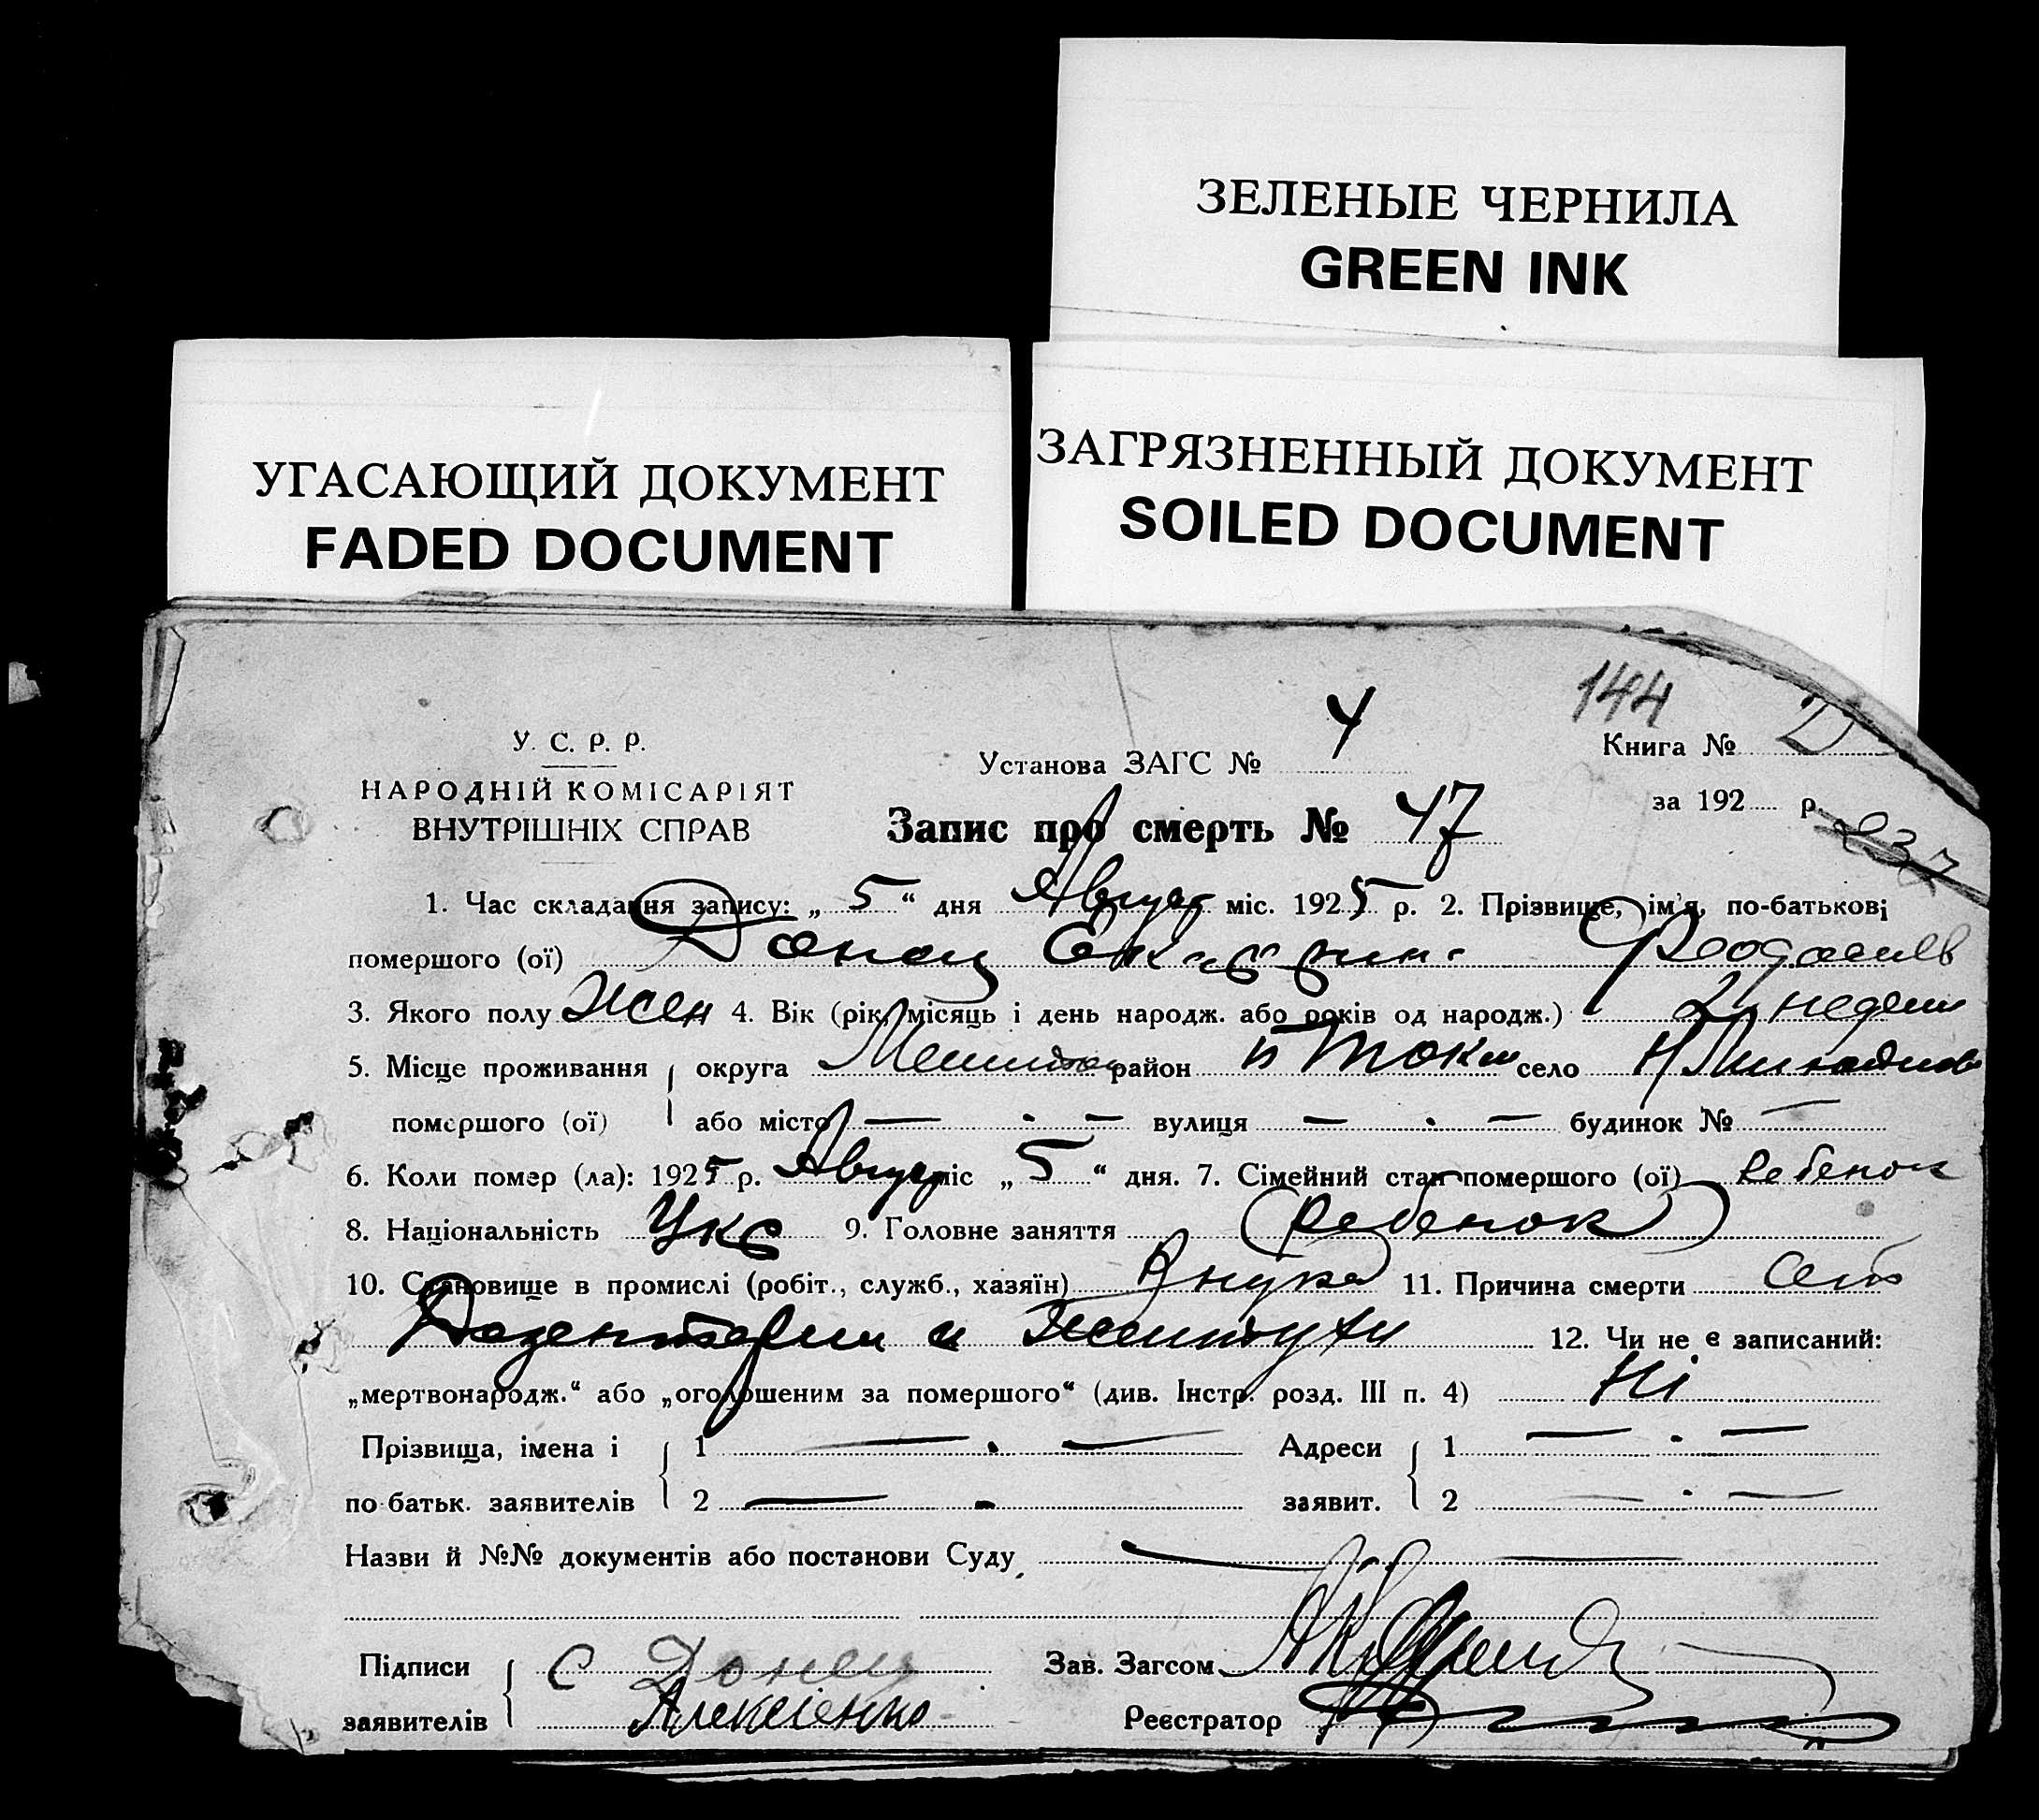 ЗЕЛЕНЫЕ ЧЕРНИЛА
GREEN INK
УГАСАЮЩИЙ ДОКУМЕНТ
FADED DOCUMENT
ЗАГРЯЗНЕННЫЙ ДОКУМЕНТ
SOILED DOCUMENT
144
У. С. Р. Р.
НАРОДНІЙ КОМІСАРІЯТ
ВНУТРІШНІХ СПРАВ
Установа ЗАГС № 4
Запис про смерть № 47
Книга №
за 192 р.
237
1. Час складання запису: „ 5 “ дня Август міс. 1925 р. 2. Прізвище, ім'я, по-батькові
помершого (ої) Донец
3. Якого полу Жен 4. Вік (рік, місяць і день народж. або років од народж.) 2 недели
5. Місце проживання округа район село
помершого (ої) або місто — · — вулиця — · — будинок № —
6. Коли помер (ла): 1925 р. Август міс „ 5 “ дня. 7. Сімейний стан помершого (ої) Ребенок
8. Національність Укр 9. Головне заняття (ребенок)
10. Становище в промислі (робіт., служб., хазяїн) Внука 11. Причина смерти
и 12. Чи не є записаний:
„мертвонародж.“ або „оголошеним за помершого“ (див. Інстр. розд. III п. 4) Ні
Прізвища, імена і 1 — · — Адреси 1 — · —
по батьк. заявителів 2 — · заявит. 2 — · —
Назви й №№ документів або постанови Суду — —
Підписи С Донец Зав. Загсом
заявителів Алексіенко Реєстратор